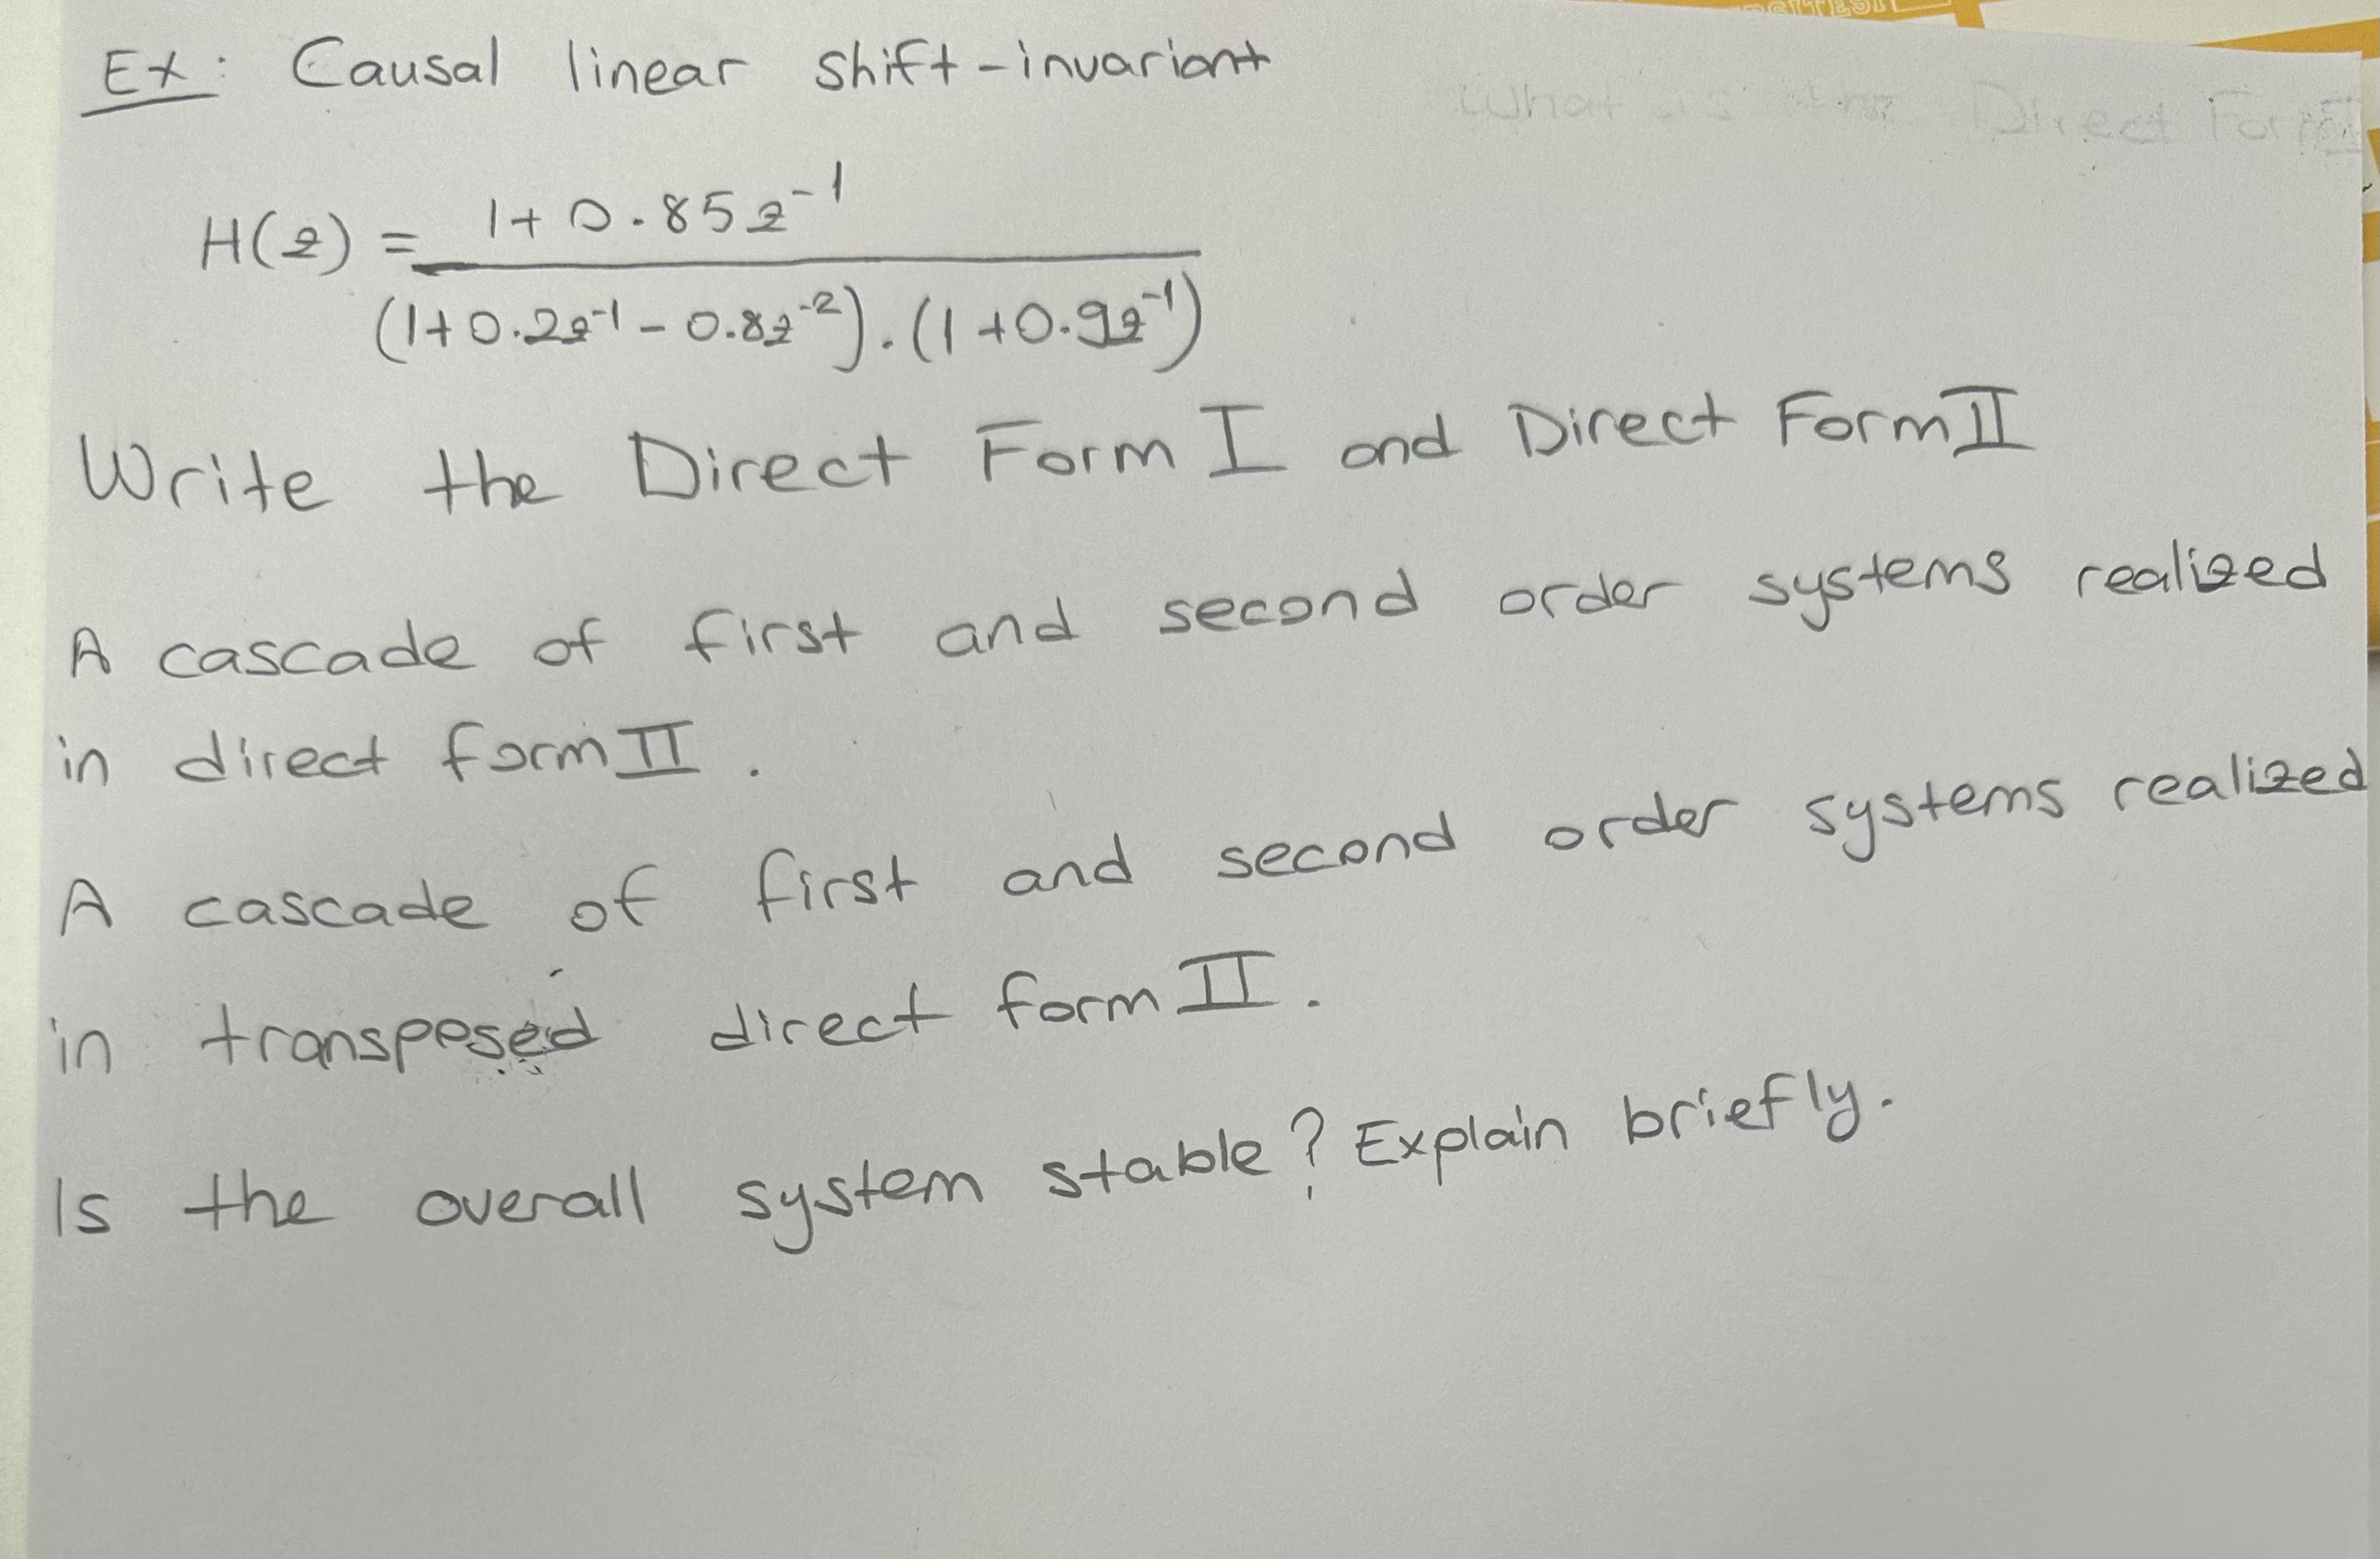 Ex: Causal linear shift-invariant
What is the Direct Form II
H(z) = 1+0.85z⁻¹
(1+0.2z⁻¹ - 0.8z⁻²).(1+0.9z⁻¹)
Write the Direct Form I and Direct Form II
A cascade of first and second order systems realized
in direct form II.
A cascade of first and second order systems realized
in transposed direct form II.
Is the overall system stable? Explain briefly.